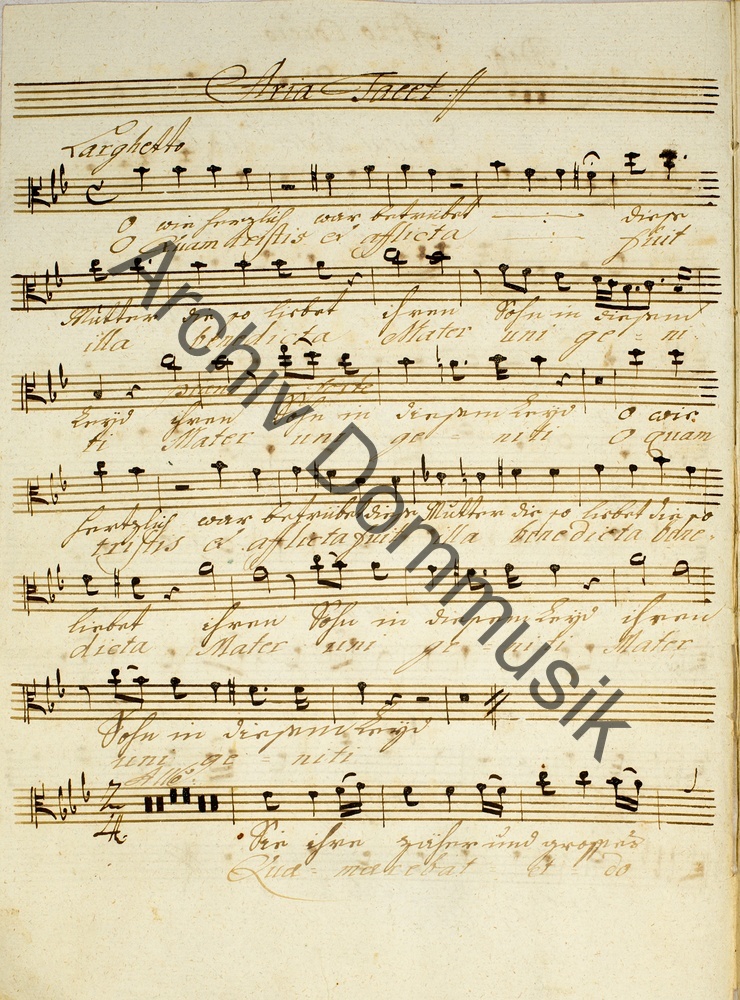 Aria Tacet
Larghetto
O wie hertzlich war betrübet diese
O Quam tristis et afflicta fuit
Mutter die so liebet ihren Sohn in diesem
illa benedicta Mater uni ge = ni
Leyd ihren Sohn in diesem Leyd O wie
ti Mater uni ge = niti O quam
hertzlich war betrübet diese Mutter die so liebet die so
tristis et afflicta fuit illa benedicta bene =
liebet ihren Sohn in diesem Leyd ihren
dicta Mater uni ge = niti Mater
Sohn in diesem Leyd
uni ge = niti
Allo:
2
4
Sie ihre zäher und grosses
Quae = maerebat et do
Archiv Dommusik